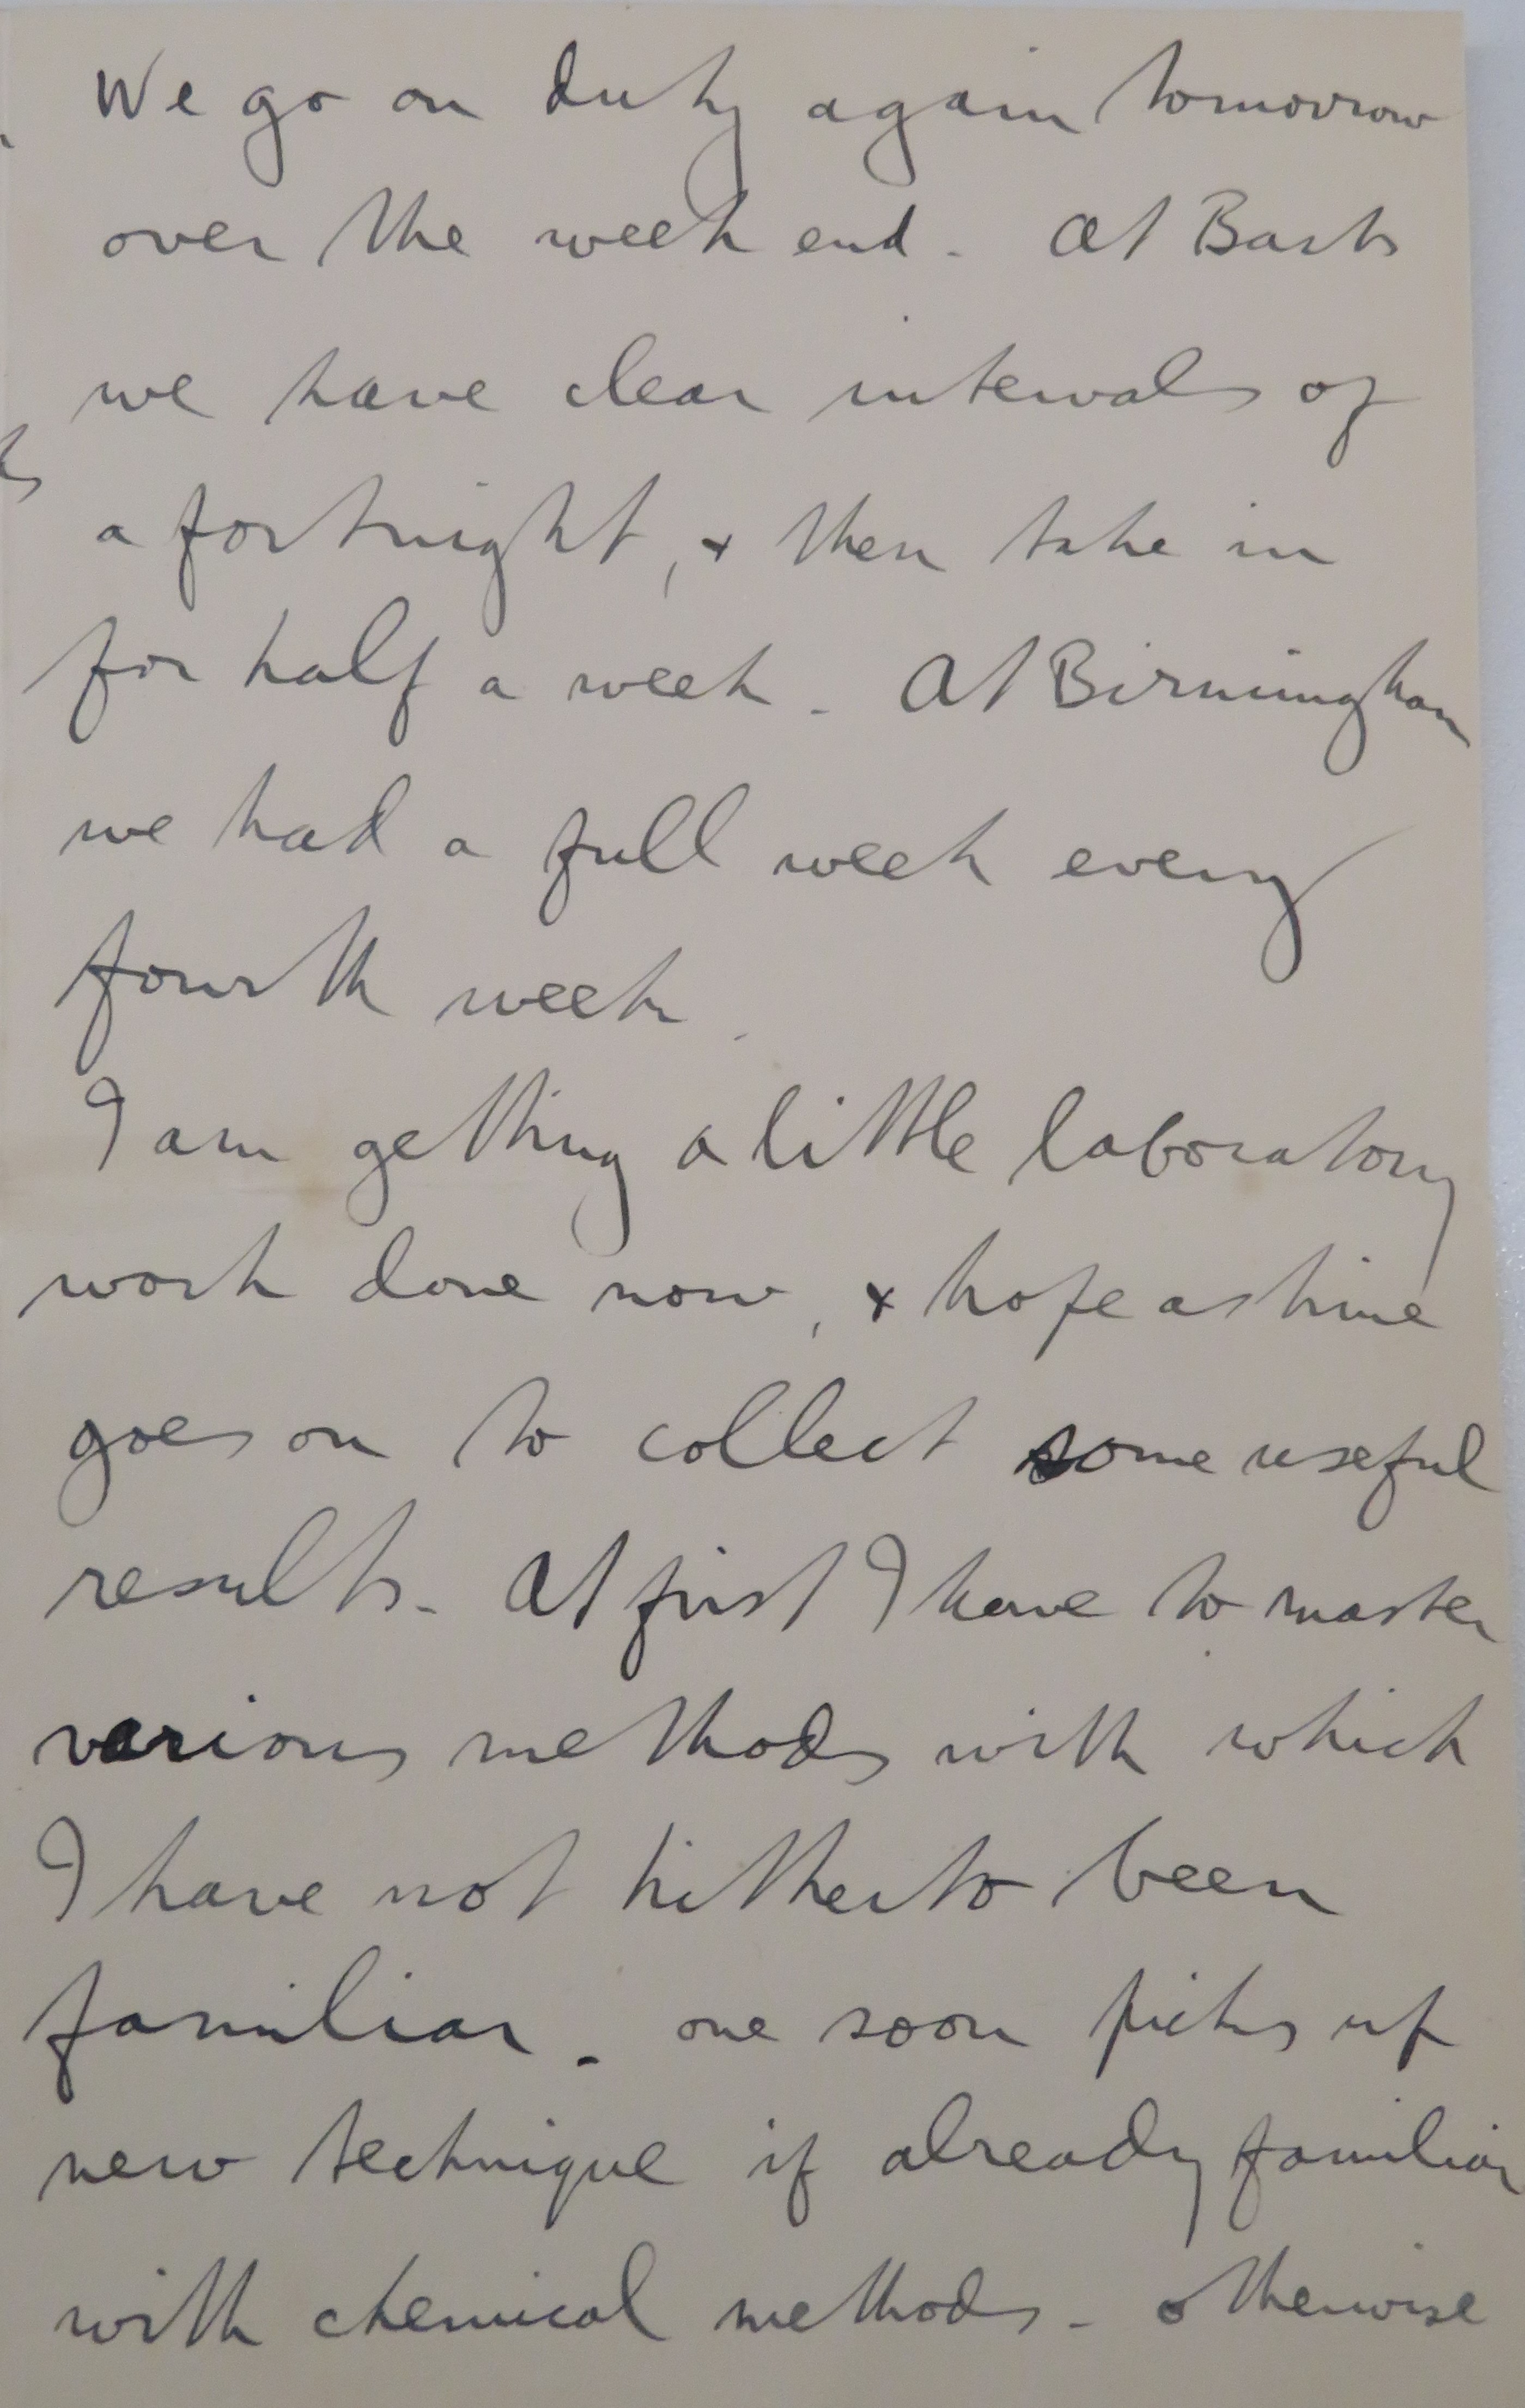 We go on duty again tomorrow
over the week end. At Barts
we have clear intervals of
a fortnight, & then take in
for half a week. At Birmingham
we had a full week every
fourth week.
I am getting a little laboratory
work done now, & hope as time
goes on to collect some useful
results. At first I have to master
various methods with which
I have not hitherto been
familiar. one soon picks up
new technique if already familiar
with chemical methods. otherwise